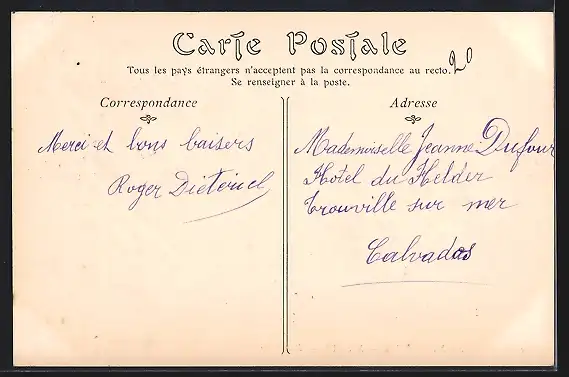 Carte Postale
20
Tous les pays étrangers n'acceptent pas la correspondance au recto.
Se renseigner à la poste.
Correspondance
Merci et bons baisers
Roger
Adresse
Mademoiselle Jeanne Dufour
Hotel du Helder
Trouville sur mer
Calvados